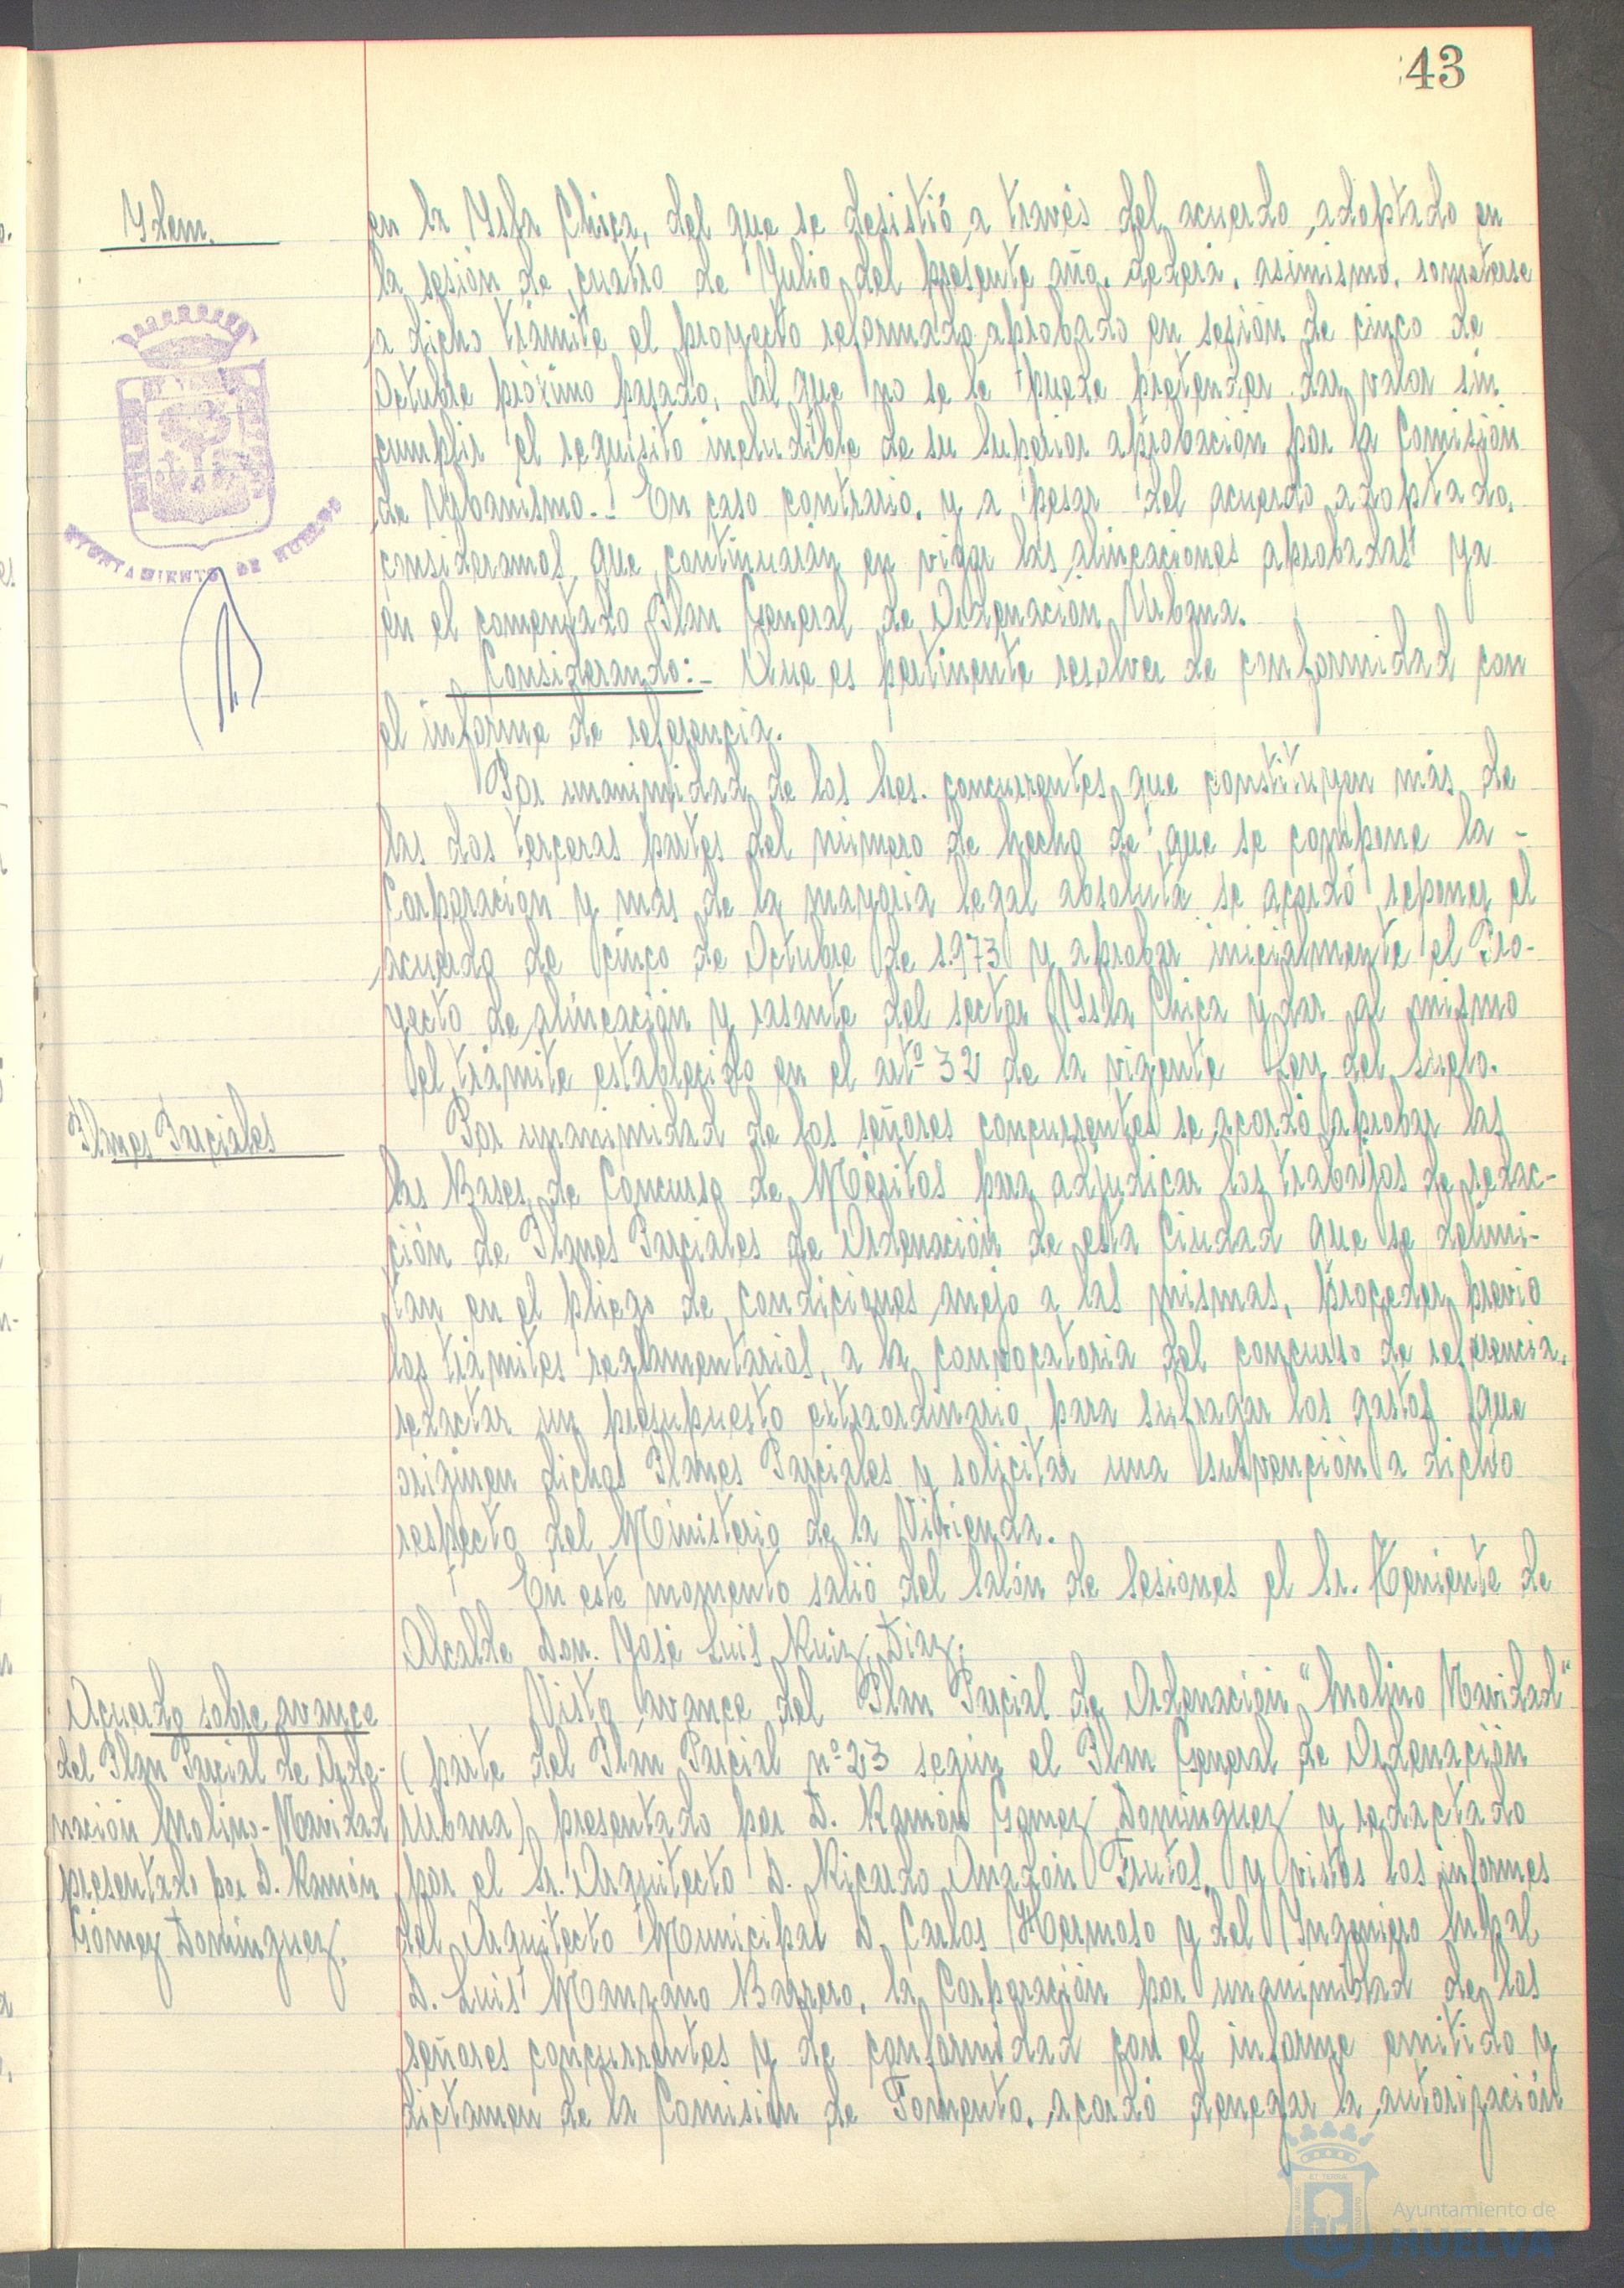 43
Ydem.
en la Ysla Chica, del que se desistió a través del acuerdo adoptado en
la sesión de cuatro de Yulio del presente año, deberá, asimismo, someterse
a dicho trámite el proyecto reformado aprobado en sesión de cinco de
Octubre próximo pasado, al que no se le puede pretender dar valor sin
cumplir el requisito ineludible de su superior aprobación por la Comisión
de Urbanismo.- En caso contrario, y a pesar del acuerdo adoptado,
consideramos que continuarán en vigor las alineaciones aprobadas ya
en el comentado Plan General de Ordenación Urbana.
Considerando:- Que es pertinente resolver de conformidad con
el informe de referencia.
Por unanimidad de los Sres. concurrentes que constituyen más de
las dos terceras partes del número de hecho de que se compone la -
Corporación y más de la mayoria legal absoluta se acordó reponer el
acuerdo de cinco de Octubre de 1.973 y aprobar inicialmente el Pro-
yecto de alineación y rasante del sector Ysla Chica y dar al mismo
el trámite establecido en el artº 32 de la vigente Ley del Suelo.
Planes Parciales
Por unanimidad de los señores concurrentes se acordó aprobar las
las Bases de Concurso de Méritos para adjudicar los trabajos de redac-
ción de Planes Parciales de Ordenación de esta Ciudad que se delimi-
tan en el pliego de condiciones anejo a las mismas, proceder, previo
los trámites reglamentarios, a la convocatoria del concurso de referencia,
redactar un presupuesto extraordinario, para sufragar los gastos que
originen dichos Planes Parciales y solicitar una subvención a dicho
respecto del Ministerio de la Vivienda.
En este momento salió del Salón de Sesiones el Sr. Teniente de
Alcalde Don. Yosé Luis Ruiz Diaz.
Acuerdo sobre avance
del Plan Parcial de Orde-
nación Molino-Navidad
presentado por D. Ramón
Gómez Dominguez.
Visto avance del Plan Parcial de Ordenación "Molino Navidad"
(parte del Plan Parcial nº 23 según el Plan General de Ordenación
Urbana) presentado por D. Ramón Gomez Dominguez y redactado
por el Sr. Arquitecto D. Ricardo Anadón Frutos, y vistos los informes
del Arquitecto Municipal D. Carlos Hermoso y del Yngeniero Mpal
D. Luis Manzano Barrero, la Corporación por unanimidad de los
señores concurrentes y de conformidad con el informe emitido y
dictamen de la Comisión de Fomento, acordó denegar la autorización
AYUNTAMIENTO DE HUELVA
Ayuntamiento de
HUELVA